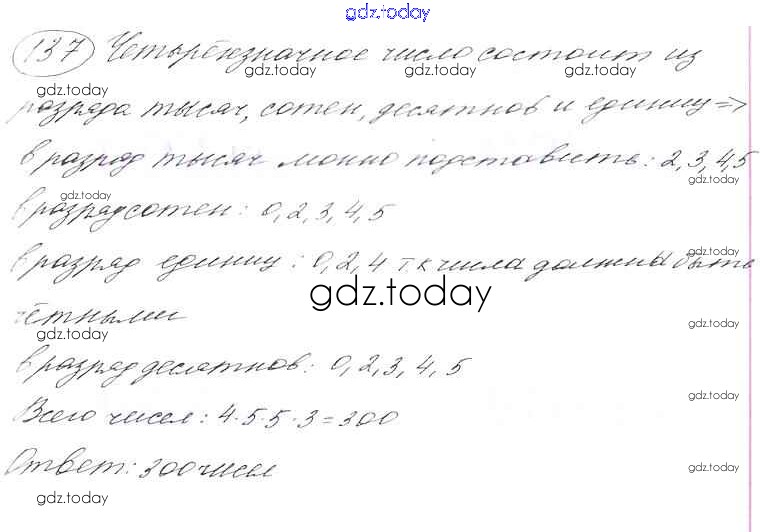 gdz.today
137 Четырёхзначное число состоит из
gdz.today gdz.today gdz.today
gdz.today
разряда тысяч, сотен, десятков и единиц =>
gdz.today
в разряд тысяч можно подставить: 2, 3, 4, 5
gdz.today
gdz.today
в разряд сотен: 0, 2, 3, 4, 5
gdz.today
в разряд единиц: 0, 2, 4 т.к числа должны быть
gdz.today
чётными
gdz.today
gdz.today
в разряд десятков: 0, 2, 3, 4, 5
gdz.today
Всего чисел: 4·5·5·3=300
Ответ: 300 чисел
gdz.today
gdz.today